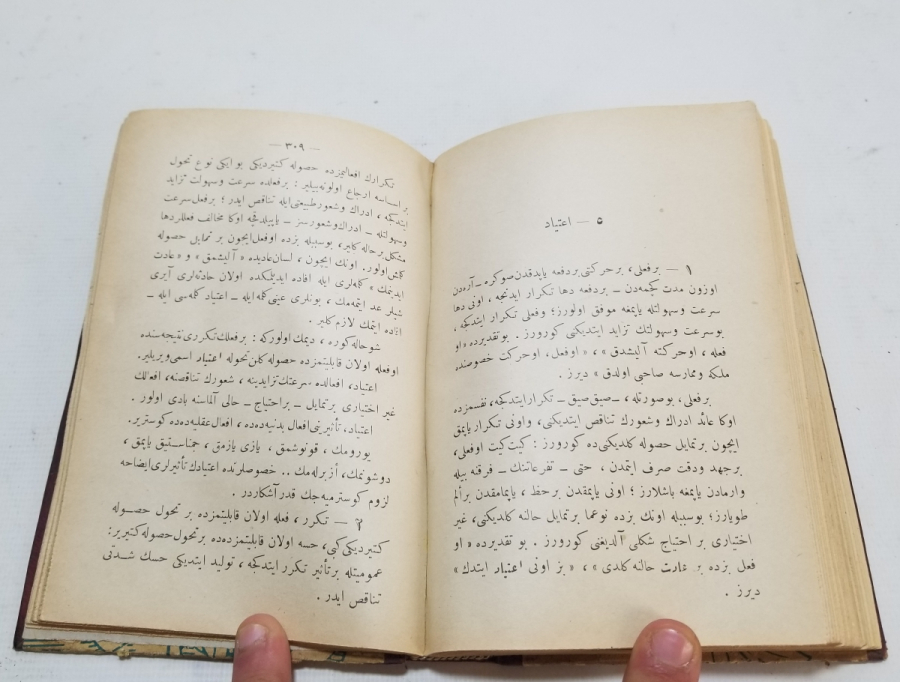 ٥ — اعتياد
١ — برفعلى، برحركتى بردفعه ياپدقدن صوكره — آره‌دن
اوزون مدت كچمه‌دن — بردفعه دها تكرار ايدنجه ، اونى دها
سرعت وسهولتله ياپمغه موفق اولورز؛ وفعلى تكرار ايتدكجه ،
بوسرعت وسهولتك تزايد ايتديكنى كورورز . بوتقديرده « او
فعله ، اوحركته آليشدق » ، « اوفعل ، اوحركت خصوصنده
ملكه وممارسه صاحبى اولدق » ديرز .
برفعلى، بوصورتله ، — صيق صيق — تكرار ايتدكجه، نفسمزده
اوكا عائد ادراك وشعورك تناقص ايتديكنى، واونى تكرار ياپمق
ايچون برتمايل حصوله كلديكنى‌ده كورورز : كيت كيت اوفعلى،
برجهد ودقت صرف ايتمدن ، حتى — تفرعاتنك — فرقنه بيله
وارمادن ياپمغه باشلارز ؛ اونى ياپمقدن برحظ ، ياپمامقدن برألم
طويارز؛ بوسببله اونك بزده نوعما برتمايل حالنه كلديكنى، غير
اختيارى بر احتياج شكلى آلديغنى كورورز . بو تقديرده « او
فعل بزده بر عادت حالنه كلدى » ، « بز اونى اعتياد ايتدك »
ديرز .
— ٣٠٩ —
تكرارك افعالمزده حصوله كتيرديكى بو ايكى نوع تحول
بر اساسه ارجاع اولونه‌بيلير : برفعلده سرعت وسهولت تزايد
ايتدكجه ، ادراك وشعور طبيعتى‌ايله تناقص ايدر ؛ برفعل سرعت
وسهولتله — ادراك وشعورسز — ياپيلدقجه اوكا مخالف فعللر دها
مشكل برحاله كلير، بوسببله بزده اوفعل ايچون بر تمايل حصوله
كلمش اولور. اونك ايچون ، لسان عاديده « آليشمق » و « عادت
ايدينمك » كلمه‌لرى ايله افاده ايديلمكده اولان حادثه‌لرى آيرى
شيلر عد ايتمه‌مك ، بونلرى عينى كلمه‌ايله — اعتياد كلمه‌سى ايله —
افاده ايتمك لازم كلير .
شوحاله كوره ، ديمك اولوركه : برفعلك تكررى نتيجه‌سنده
اوفعله اولان قابليتمزده حصوله كلن تحوله اعتياد اسمى ويريلير.
اعتياد، افعالده سرعتك تزايدينه ، شعورك تناقصنه، افعالك
غير اختيارى برتمايل — براحتياج — حالى آلماسنه بادى اولور .
اعتياد، تأثيرينى افعال بدنيه‌ده‌ده ، افعال عقليه‌ده‌ده كوستريـر.
يورومك ، قونوشمق ، يازى يازمق ، جمناستيق ياپمق ،
دوشونمك، ازبرله‌مك .. خصوصلرنده اعتيادك تأثيرلرى ايضاحه
لزوم كوسترميه‌جك قدر آشكاردر .
٢ — تكرر، فعله اولان قابليتمزده بر تحول حصـوله
كتيرديكى كبى، حسه اولان قابليتمزده‌ده برتحول حصوله كتيرير:
عموميتله برتأثير تكرر ايتدكجه ، توليد ايتديكى حسك شـدتى
تناقص ايدر .